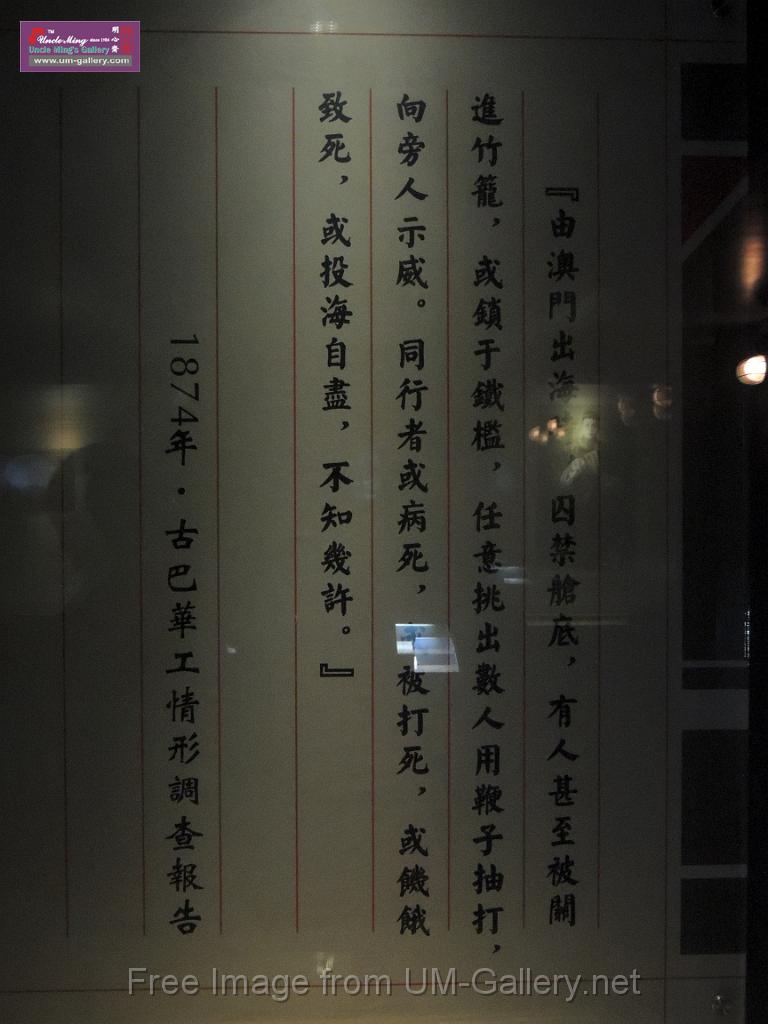 『由澳門出海 囚禁艙底，有人甚至被關
進竹籠，或鎖于鐵檻，任意挑出數人用鞭子抽打，
向旁人示威。同行者或病死， 被打死，或饑餓
致死，或投海自盡，不知幾許。』
1874年·古巴華工情形調查報告
Uncle Ming since 1986
明心齋
Uncle Ming's Gallery
www.um-gallery.com
Free Image from UM-Gallery.net